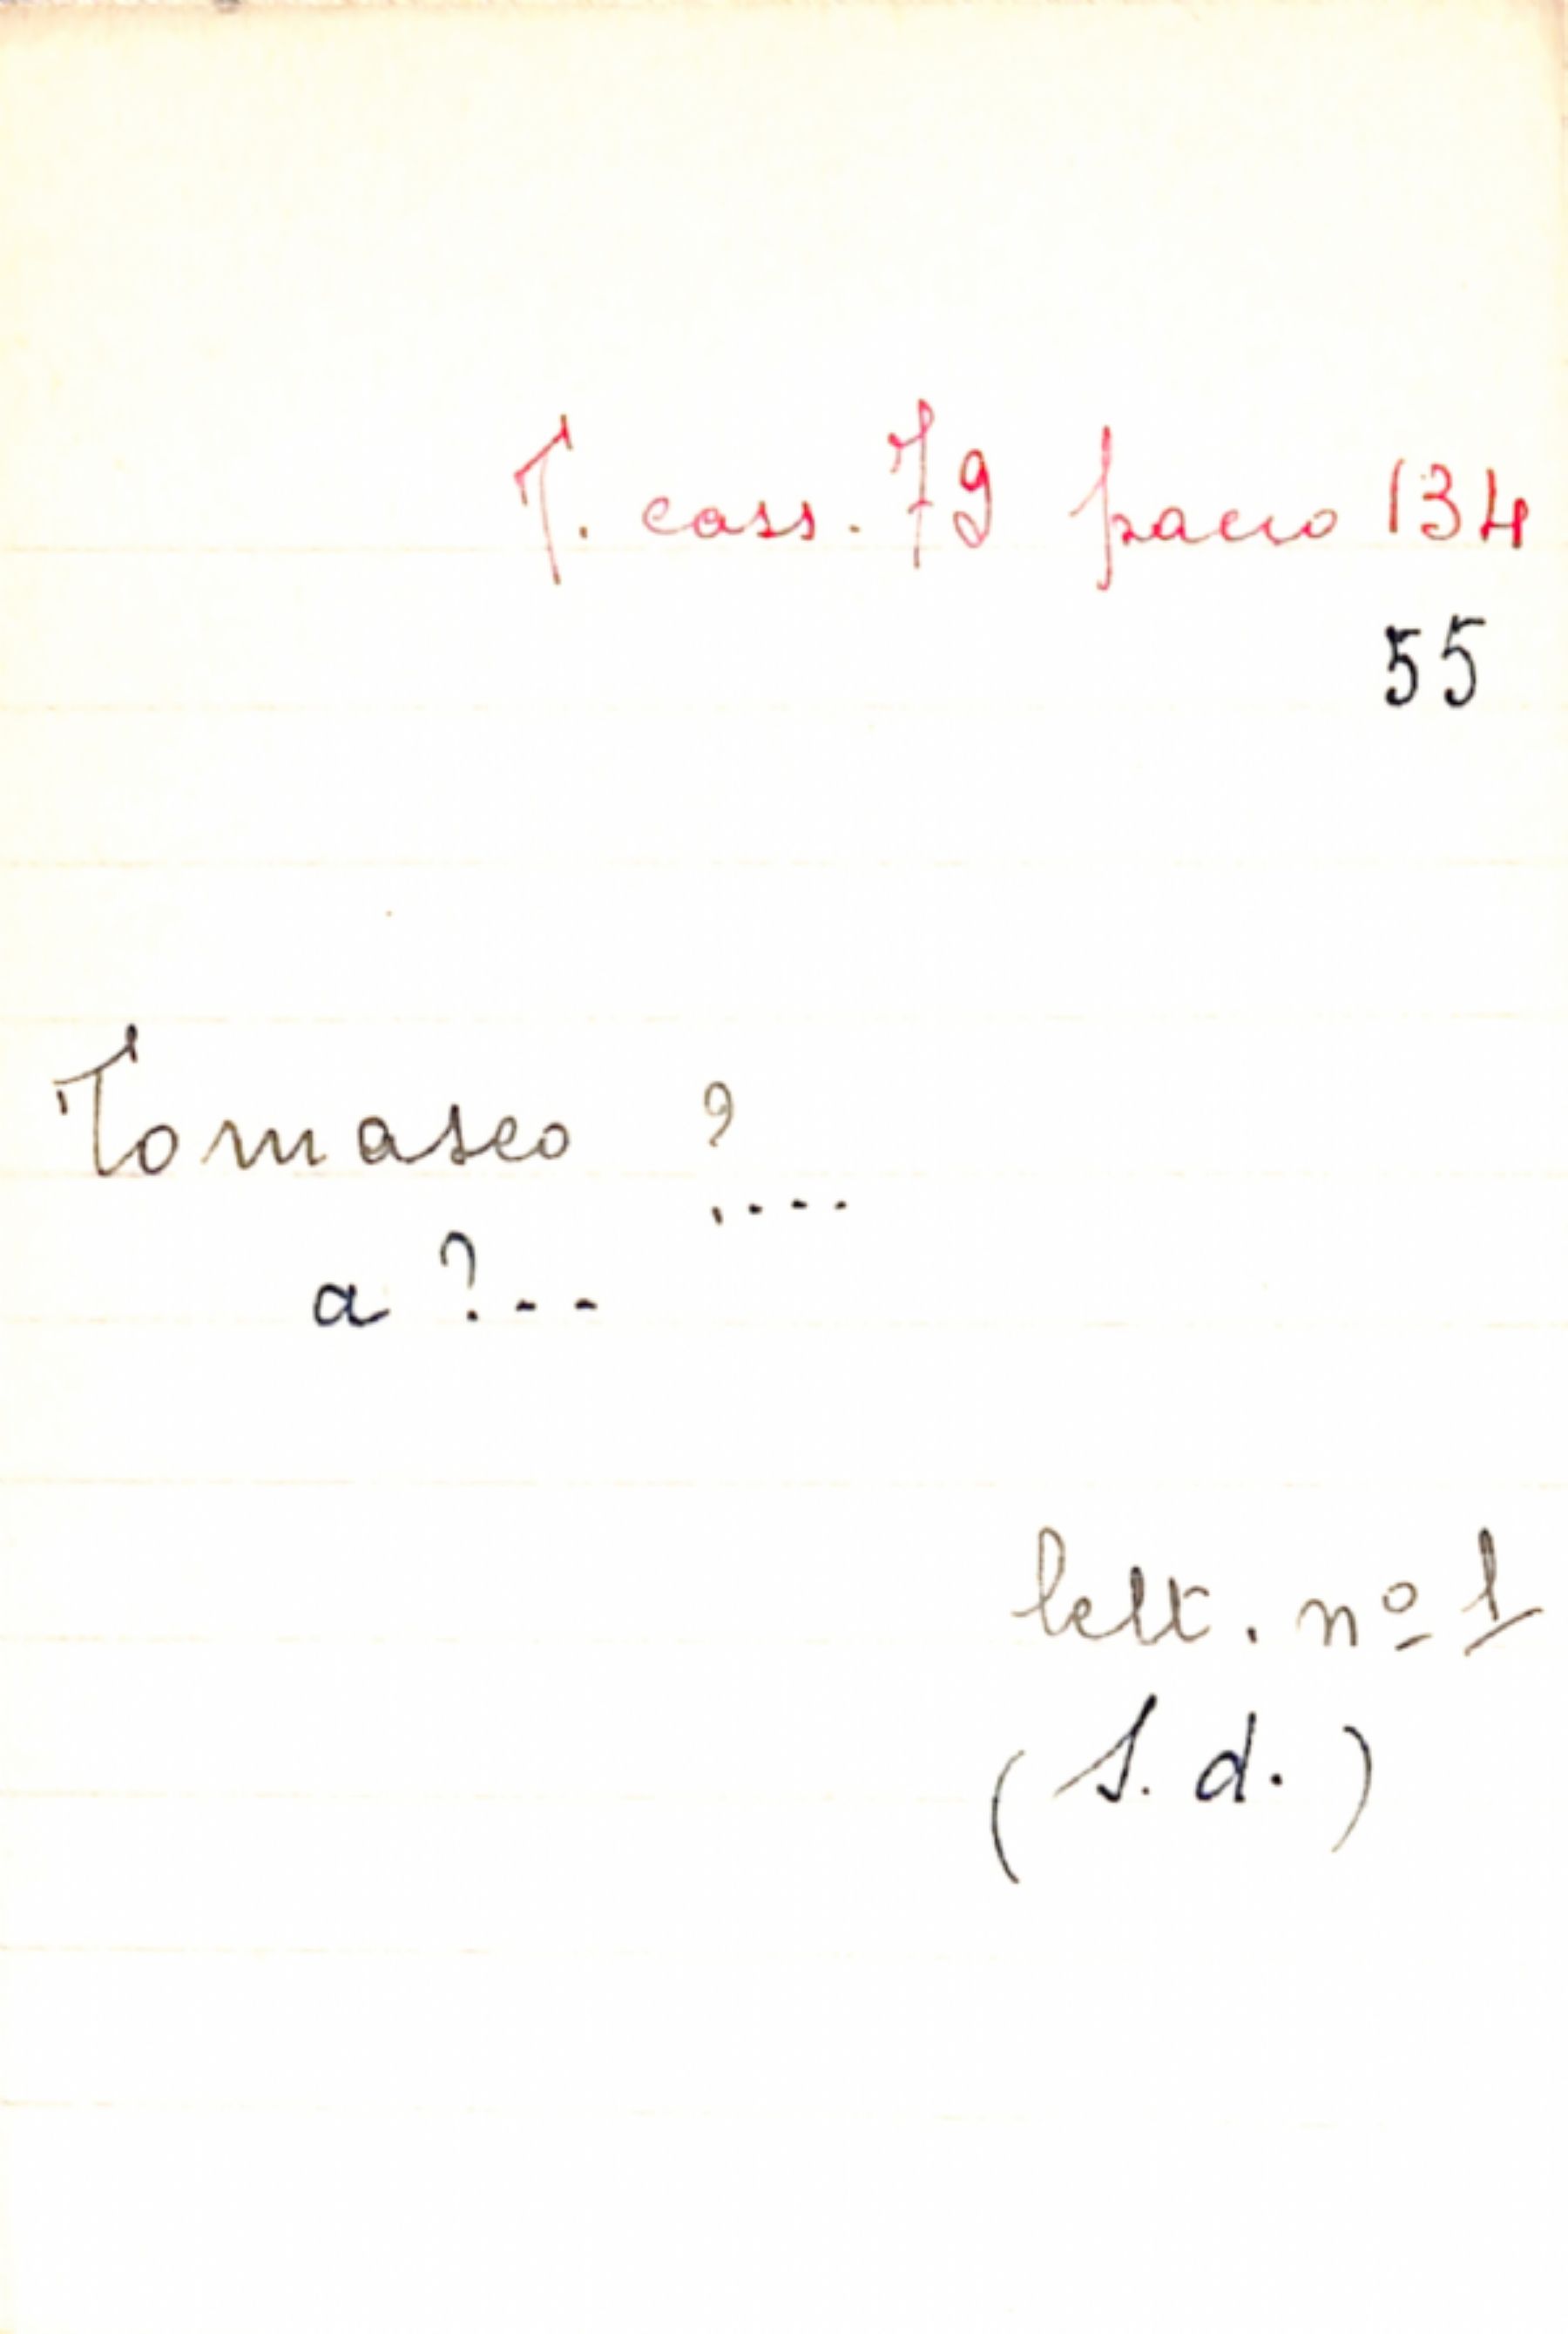 T. cass. 79 pacco 134
55
Tomaseo ?
....
a ?..
lett. nº 1
(S. d.)